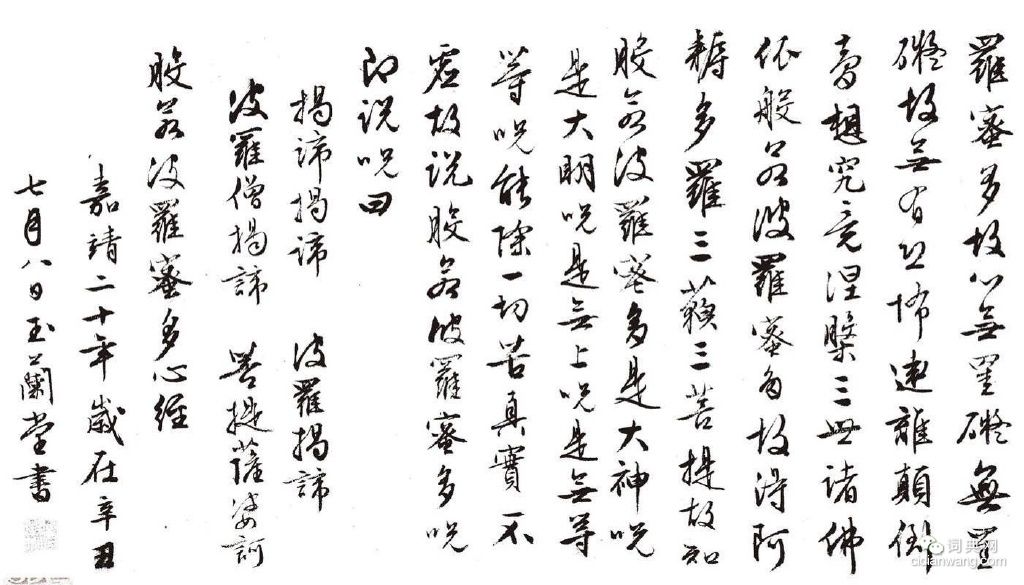 羅蜜多故心無罣礙無罣
礙故無有恐怖遠離顛倒
夢想究竟涅槃三世諸佛
依般若波羅蜜多故得阿
耨多羅三藐三菩提故知
般若波羅蜜多是大神呪
是大明呪是無上呪是無等
等呪能除一切苦真實不
虛故說般若波羅蜜多呪
即說呪曰
揭諦揭諦 波羅揭諦
波羅僧揭諦 菩提薩婆訶
般若波羅蜜多心經
嘉靖二十年歲在辛丑
七月八日玉蘭堂書
词典网
cidianwang.com